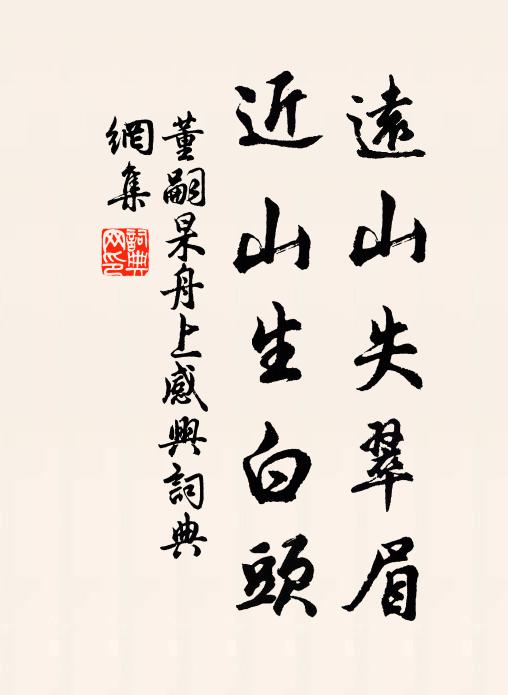 遠山失翠眉
近山生白頭
董嗣杲舟上感興詞典
網集
詞典
网印